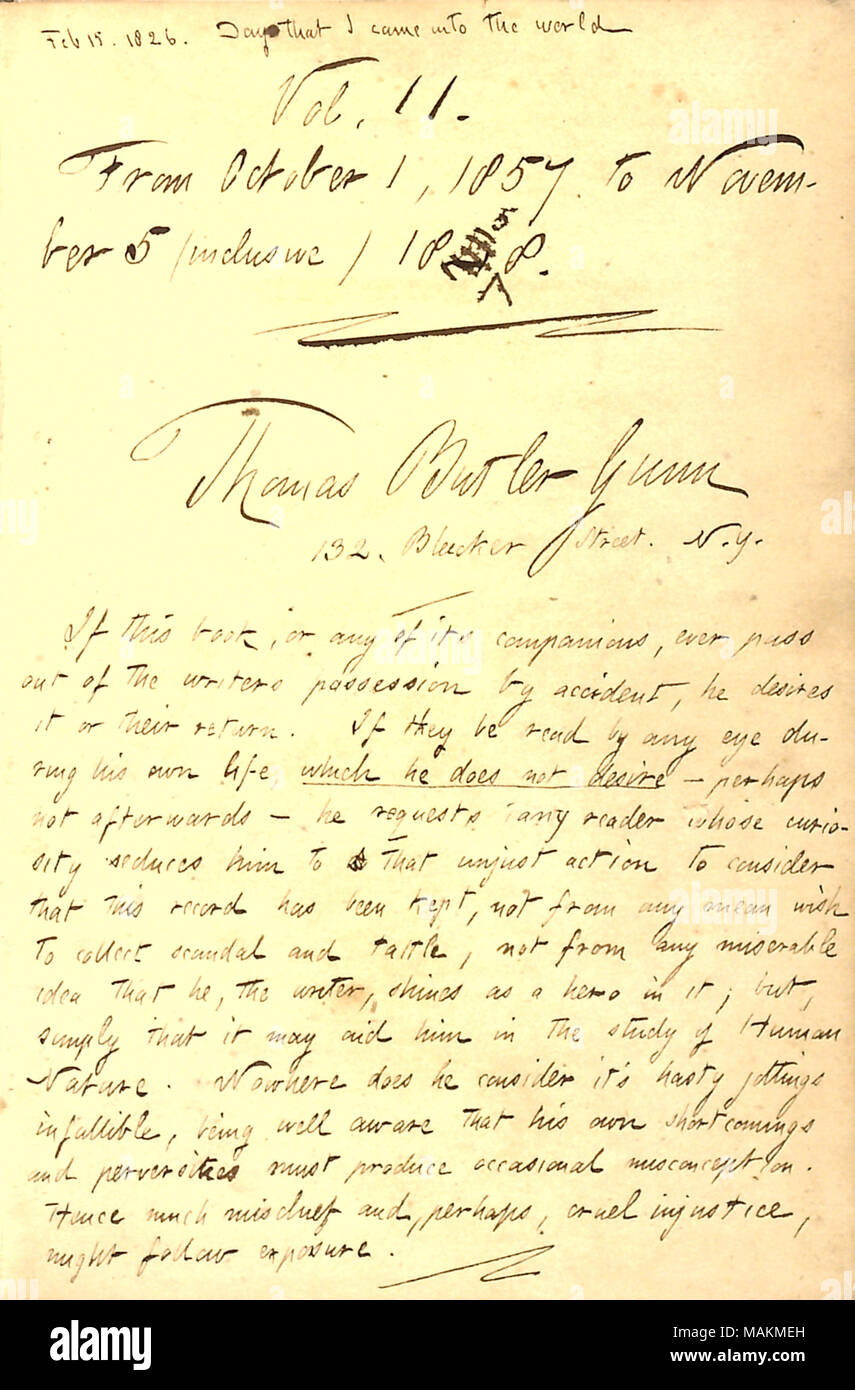 Feb 15. 1826. Day that I came into the world
Vol, 11.
From October 1, 1857 to Novem-
ber 5 (inclusive) 1858.
Thomas Butler Gunn
132. Bleecker Street. N.Y.
If this book, or any of its companions, ever pass
out of the writers possession by accident, he desires
it or their return. If they be read by any eye du-
ring his own life, which he does not desire — perhaps
not afterwards — he requests any reader whose curio-
sity seduces him to that unjust action to consider
that this record has been kept, not from any mean wish
to collect scandal and tattle, not from any miserable
idea that he, the writer, shines as a hero in it; but,
simply that it may aid him in the study of Human
Nature. Nowhere does he consider it's hasty jottings
infallible, being well aware that his own shortcomings
and perversities must produce occasional misconception.
Hence much mischief and, perhaps, cruel injustice,
might follow exposure.
alamy
Image ID: MAKMEH
www.alamy.com